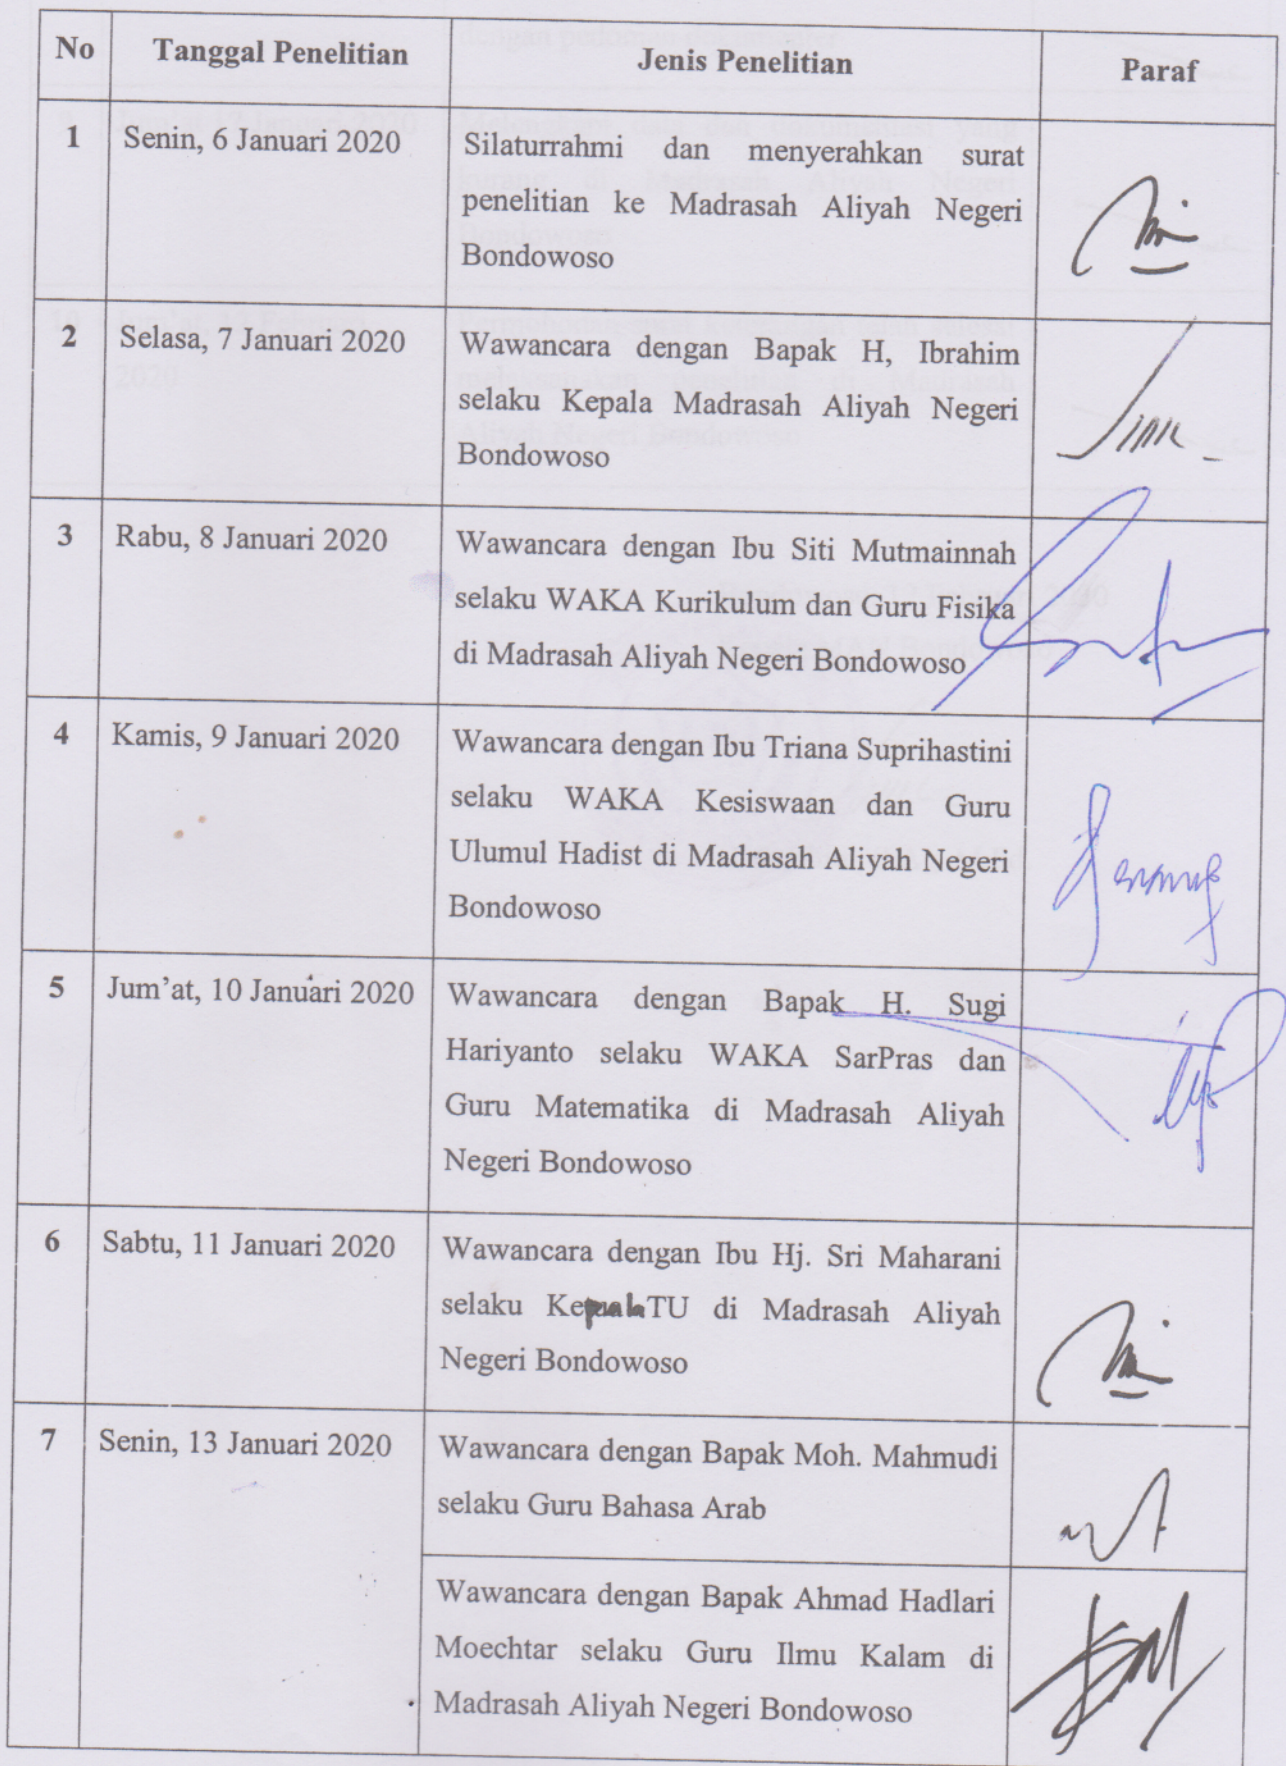 No Tanggal Penelitian Jenis Penelitian Paraf
1 Senin, 6 Januari 2020 Silaturrahmi dan menyerahkan surat
penelitian ke Madrasah Aliyah Negeri
Bondowoso
2 Selasa, 7 Januari 2020 Wawancara dengan Bapak H, Ibrahim
selaku Kepala Madrasah Aliyah Negeri
Bondowoso
3 Rabu, 8 Januari 2020 Wawancara dengan Ibu Siti Mutmainnah
selaku WAKA Kurikulum dan Guru Fisika
di Madrasah Aliyah Negeri Bondowoso
4 Kamis, 9 Januari 2020 Wawancara dengan Ibu Triana Suprihastini
selaku WAKA Kesiswaan dan Guru
Ulumul Hadist di Madrasah Aliyah Negeri
Bondowoso
5 Jum'at, 10 Januari 2020 Wawancara dengan Bapak H. Sugi
Hariyanto selaku WAKA SarPras dan
Guru Matematika di Madrasah Aliyah
Negeri Bondowoso
6 Sabtu, 11 Januari 2020 Wawancara dengan Ibu Hj. Sri Maharani
selaku Kepala TU di Madrasah Aliyah
Negeri Bondowoso
7 Senin, 13 Januari 2020 Wawancara dengan Bapak Moh. Mahmudi
selaku Guru Bahasa Arab
Wawancara dengan Bapak Ahmad Hadlari
Moechtar selaku Guru Ilmu Kalam di
Madrasah Aliyah Negeri Bondowoso